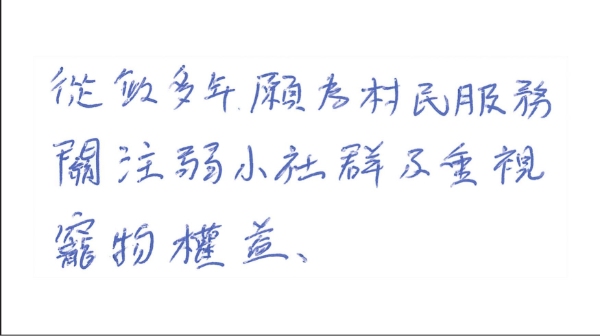 從政多年願為村民服務
關注弱小社群及重視
寵物權益、